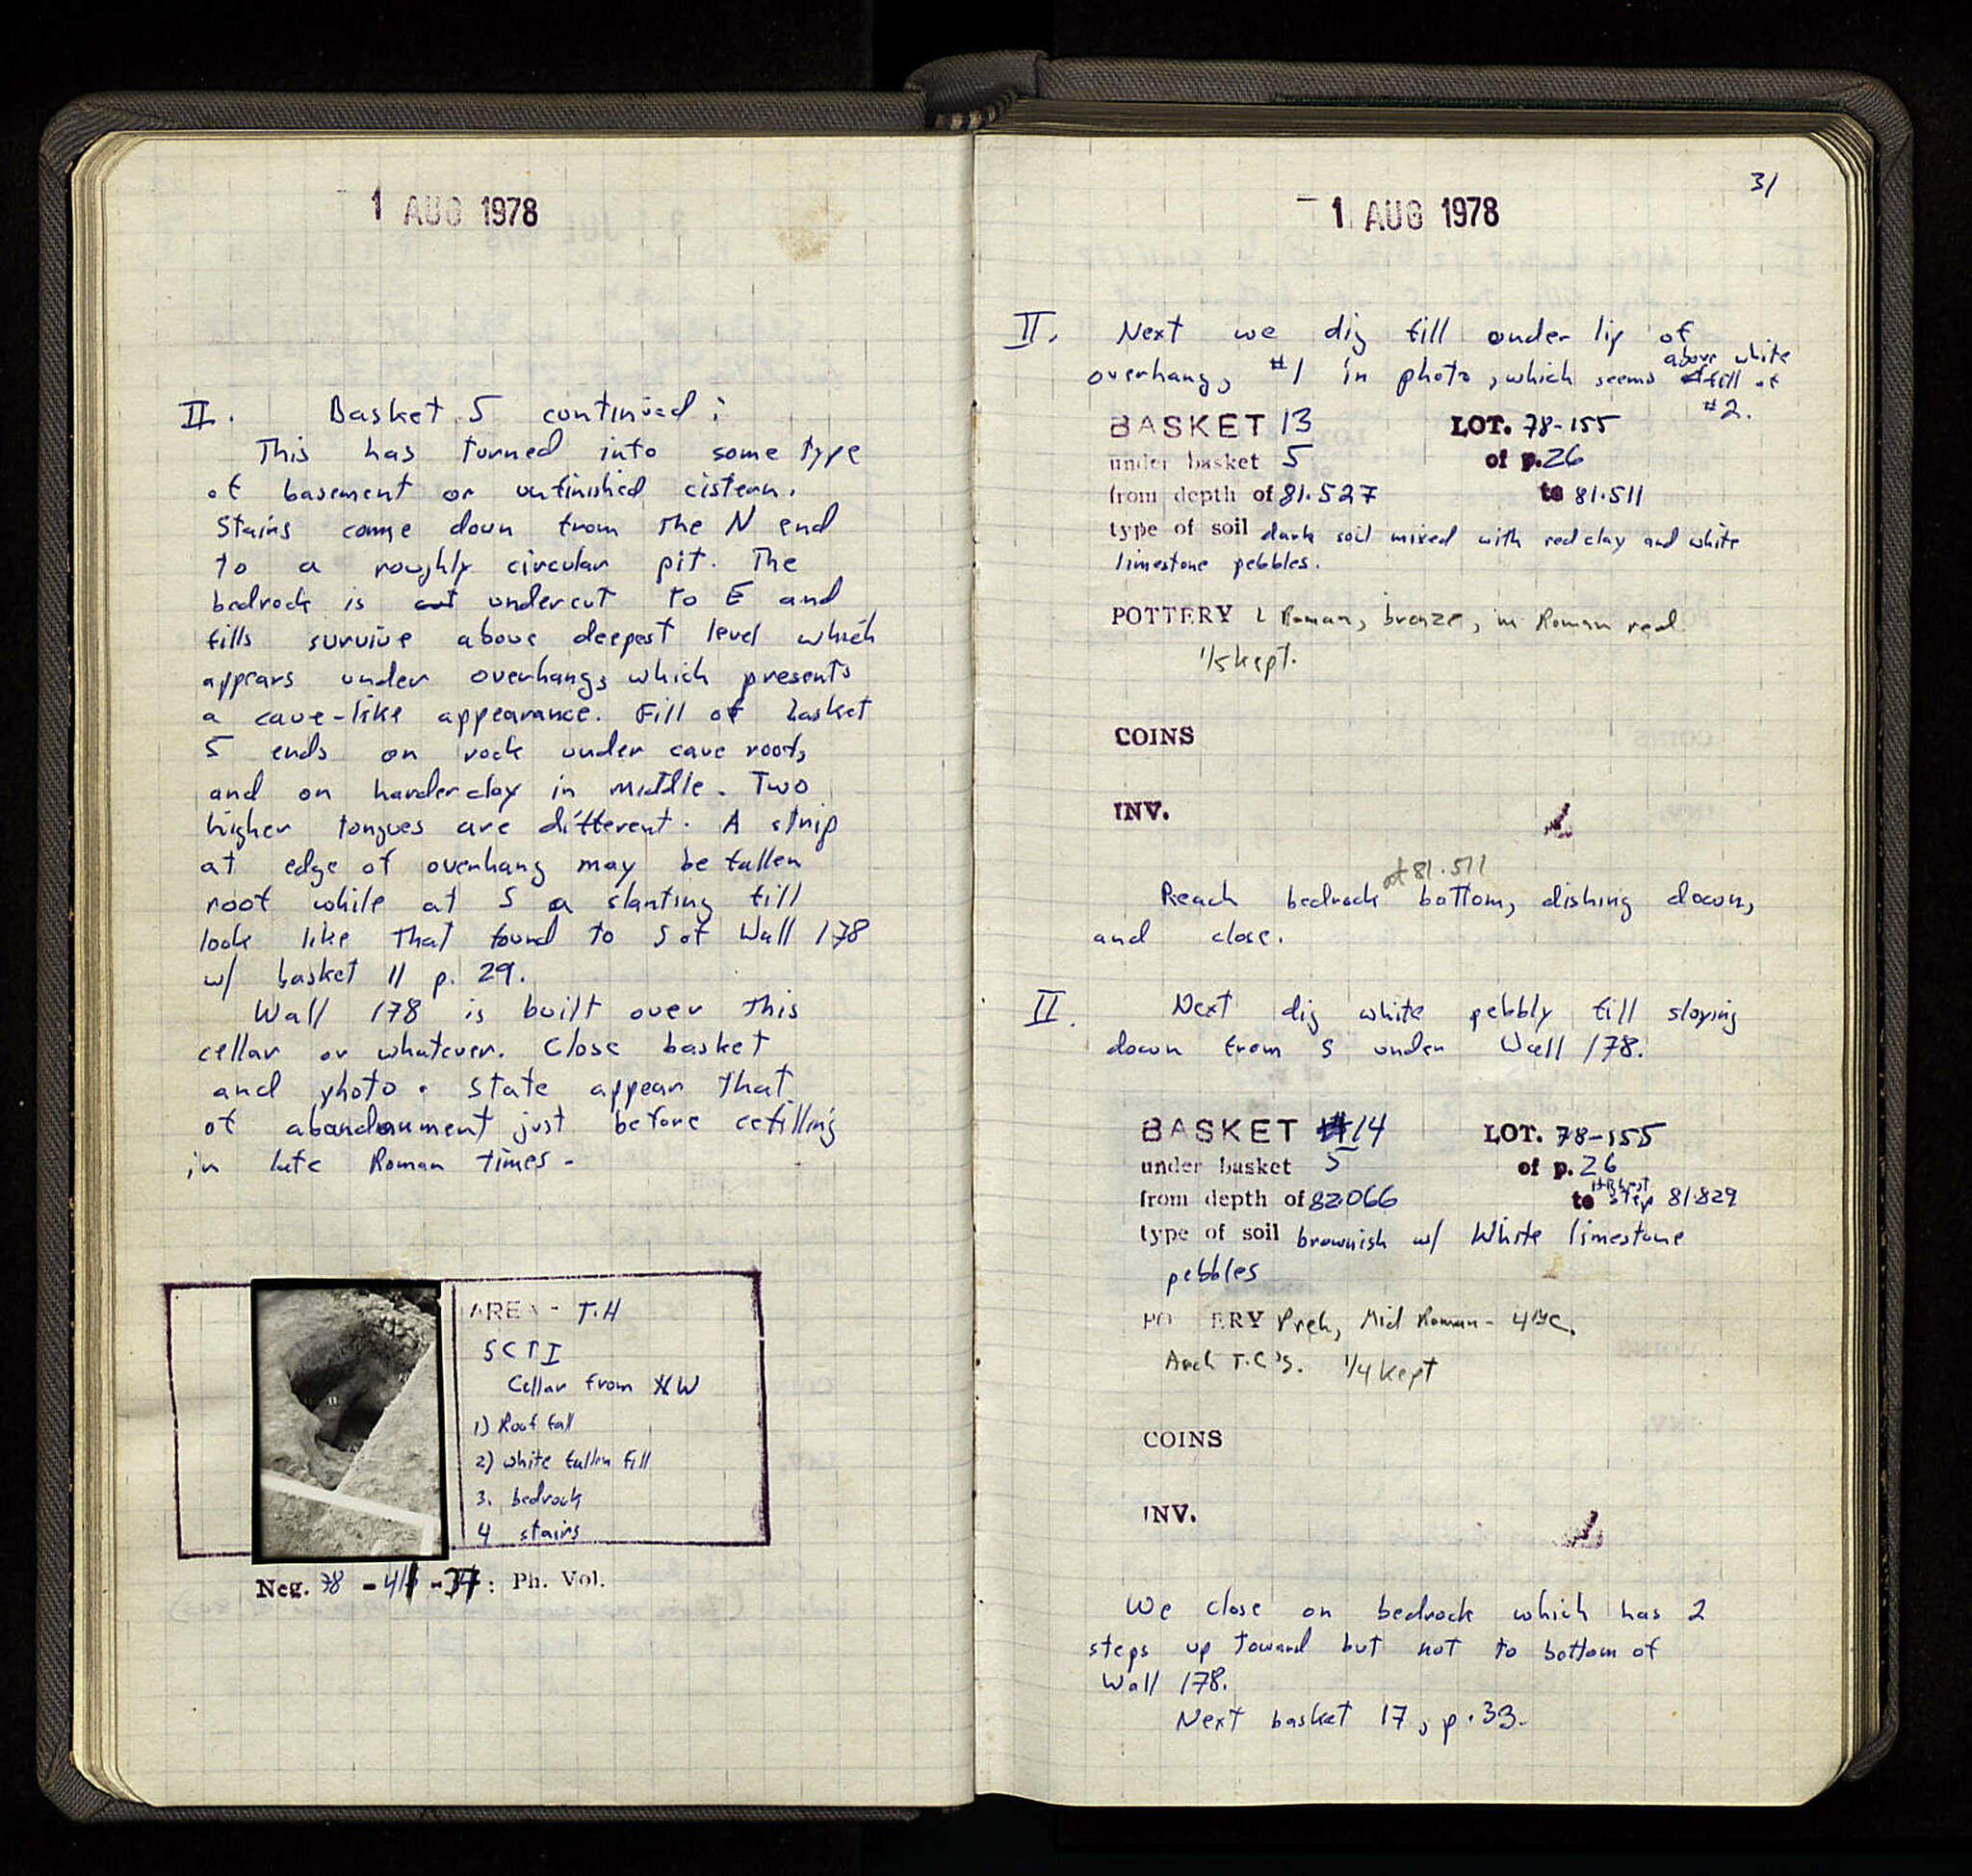 1 AUG 1978
II. Basket 5 continued:
This has turned into some type
of basement or unfinished cistern.
Stairs come down from the N end
to a roughly circular pit. The
bedrock is undercut to E and
fills survive above deepest level which
appears under overhang, which presents
a cave-like appearance. Fill of basket
5 ends on rock under cave roof,
and on harder clay in middle. Two
higher tongues are different. A strip
at edge of overhang may be fallen
roof while at S a slanting fill
look like that found to S of Wall 178
w/ basket 11 p. 29.
Wall 178 is built over this
cellar or whatever. Close basket
and photo. State appear that
of abandonment just before refilling
in late Roman times.
AREA - T.H
SCT I
Cellar from NW
1) Roof fall
2) white fallen fill
3. bedrock
4 stairs
Neg. 78 - : Ph. Vol.
31
1 AUG 1978
II. Next we dig fill under lip of
overhang, #1 in photo, which seems above white fill at
#2.
BASKET 13 LOT. 78-155
under basket 5 of p. 26
from depth of 81.527 to 81.511
type of soil dark soil mixed with red clay and white
limestone pebbles.
POTTERY L Roman, bronze, m Roman red
1/5 kept.
COINS
INV.
Reach bedrock at 81.511 bottom, dishing down,
and close.
II. Next dig white pebbly fill sloping
down from S under Wall 178.
BASKET 14 LOT. 78-155
under basket 5 of p. 26
from depth of 82.066 to step 81.829
type of soil brownish w/ White limestone
pebbles
PO ERY Preh, Mid Roman - 4th C.
Arch T.C's. 1/4 kept
COINS
INV.
We close on bedrock which has 2
steps up toward but not to bottom of
Wall 178.
Next basket 17, p. 33.